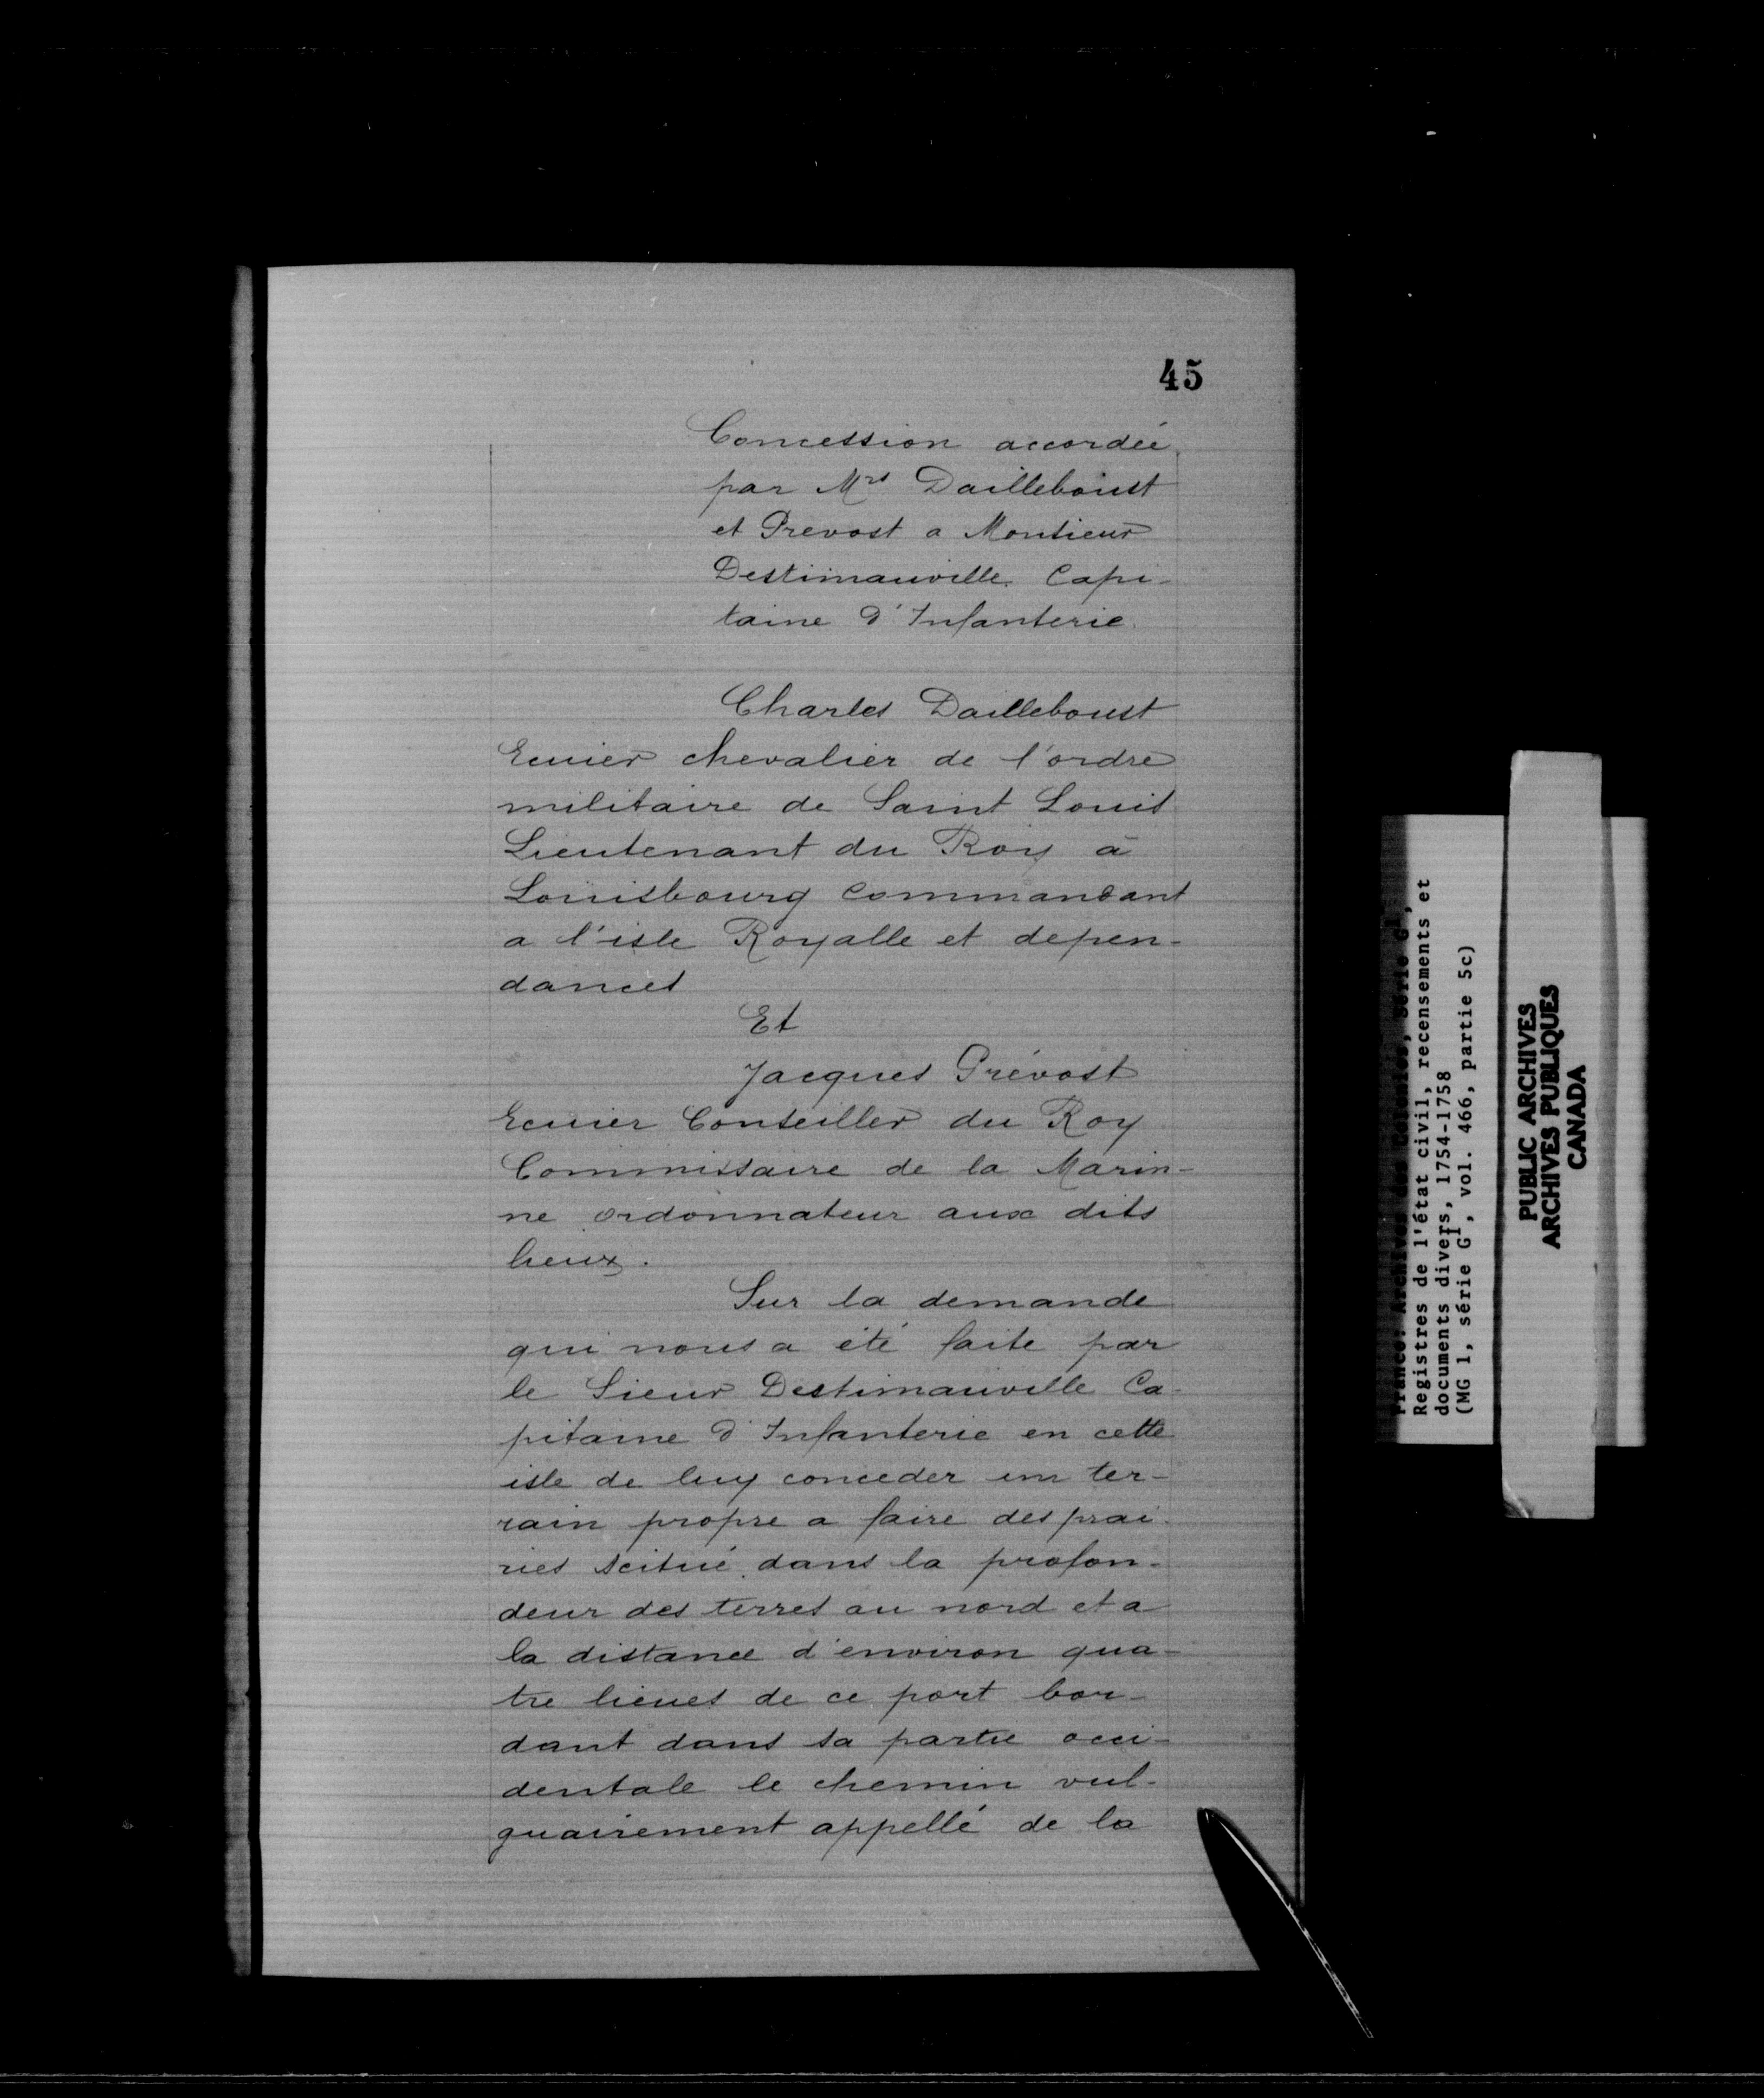 45
Concession accordée
par Mrs Dailleboust
et Prevost a Monsieur
Destimauville Capi-
taine d'Infanterie.
Charles Dailleboust
Ecuier chevalier de l'ordre
militaire de Saint Louis
Lieutenant du Roy à
Louisbourg Commandant
a l'isle Royalle et depen-
dances
Et
Jacques Prévost
Ecuier Conseiller du Roy
Commissaire de la Marin-
ne ordonnateur aux dits
lieux.
Sur la demande
qui nous a été faite par
le Sieur Destimauville Ca-
pitaine d'Infanterie en cette
isle de luy conceder un ter-
rain propre a faire des prai-
ries scitué dans la profon-
deur des terres au nord et a
la distance d'environ qua-
tre lieues de ce port bor-
dant dans sa partie occi-
dentale le chemin vul-
guairement appellé de la
France: Archives des Colonies, Série G1,
Registres de l'état civil, recensements et
documents divers, 1754-1758
(MG 1, série G1, vol. 466, partie 5c)
PUBLIC ARCHIVES
ARCHIVES PUBLIQUES
CANADA